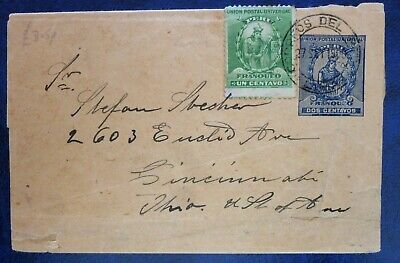 UNION POSTAL UNIVERSAL
PERU
FRANQUEO
UN CENTAVO
UNION POSTAL UNIVERSAL
PERU
FRANQUEO
DOS CENTAVOS
OS DEL
Sr.
Stefan
2603 Euclid Ave
Cincinnati
Ohio